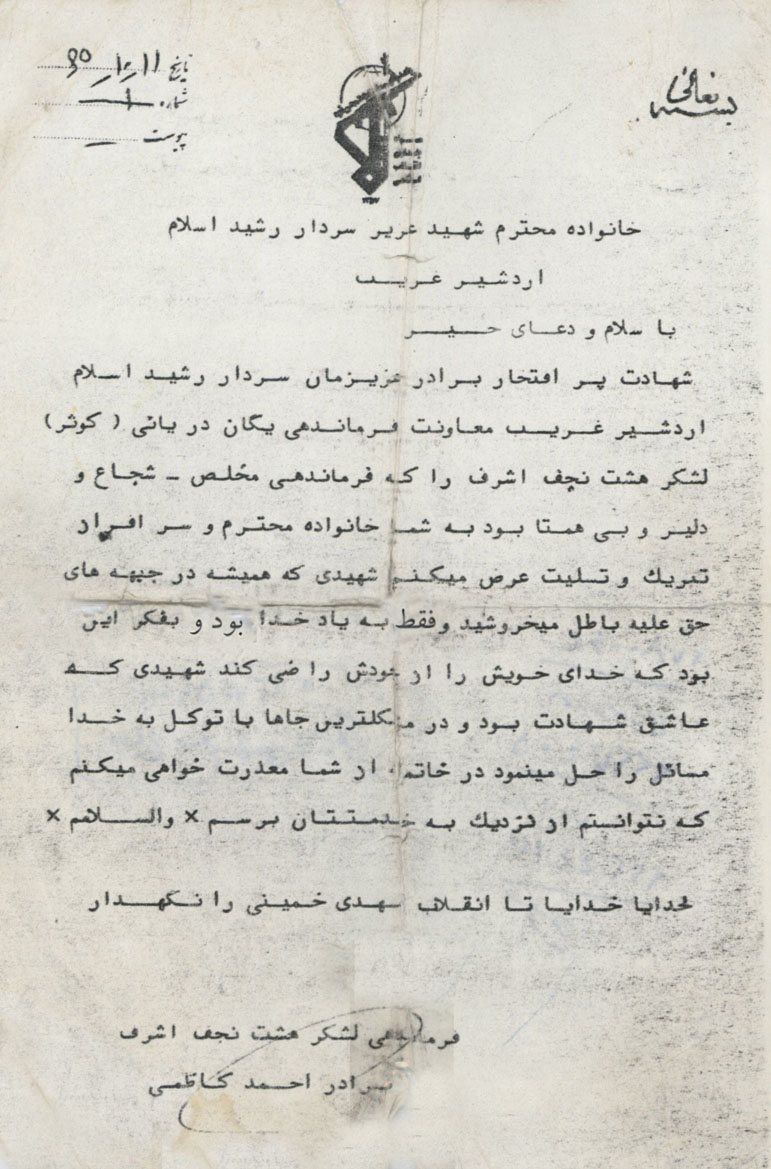 بسمه تعالی
تاریخ ۱۱
شماره ۱
پیوست —
خانواده محترم شهید عزیز سردار رشید اسلام
اردشیر غریب
با سلام و دعای خیر
شهادت پر افتخار برادر عزیزمان سردار رشید اسلام
اردشیر غریب معاونت فرماندهی یگان دریائی ( کوثر )
لشکر هشت نجف اشرف را که فرماندهی مخلص ـ شجاع و
دلیر و بی همتا بود به شما خانواده محترم و سر افراز
تبریك و تسلیت عرض میکنم شهیدی که همیشه در جبهه های
حق علیه باطل میخروشید و فقط به یاد خدا بود و بفکر این
بود که خدای خویش را از خودش راضی کند شهیدی که
عاشق شهادت بود و در مشکلترین جاها با توکل به خدا
مسائل را حل مینمود در خاتمه از شما معذرت خواهی میکنم
که نتوانستم از نزدیك به خدمتتان برسم × والسلام ×
خدایا خدایا تا انقلاب مهدی خمینی را نگهدار
فرماندهی لشکر هشت نجف اشرف
برادر احمد کاظمی